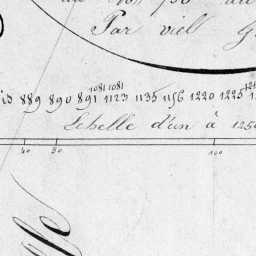 Par viel
1081 1081
889 890 891 1123 1135 1156 1220 1225
Echelle d'un à 1250
40 50 100